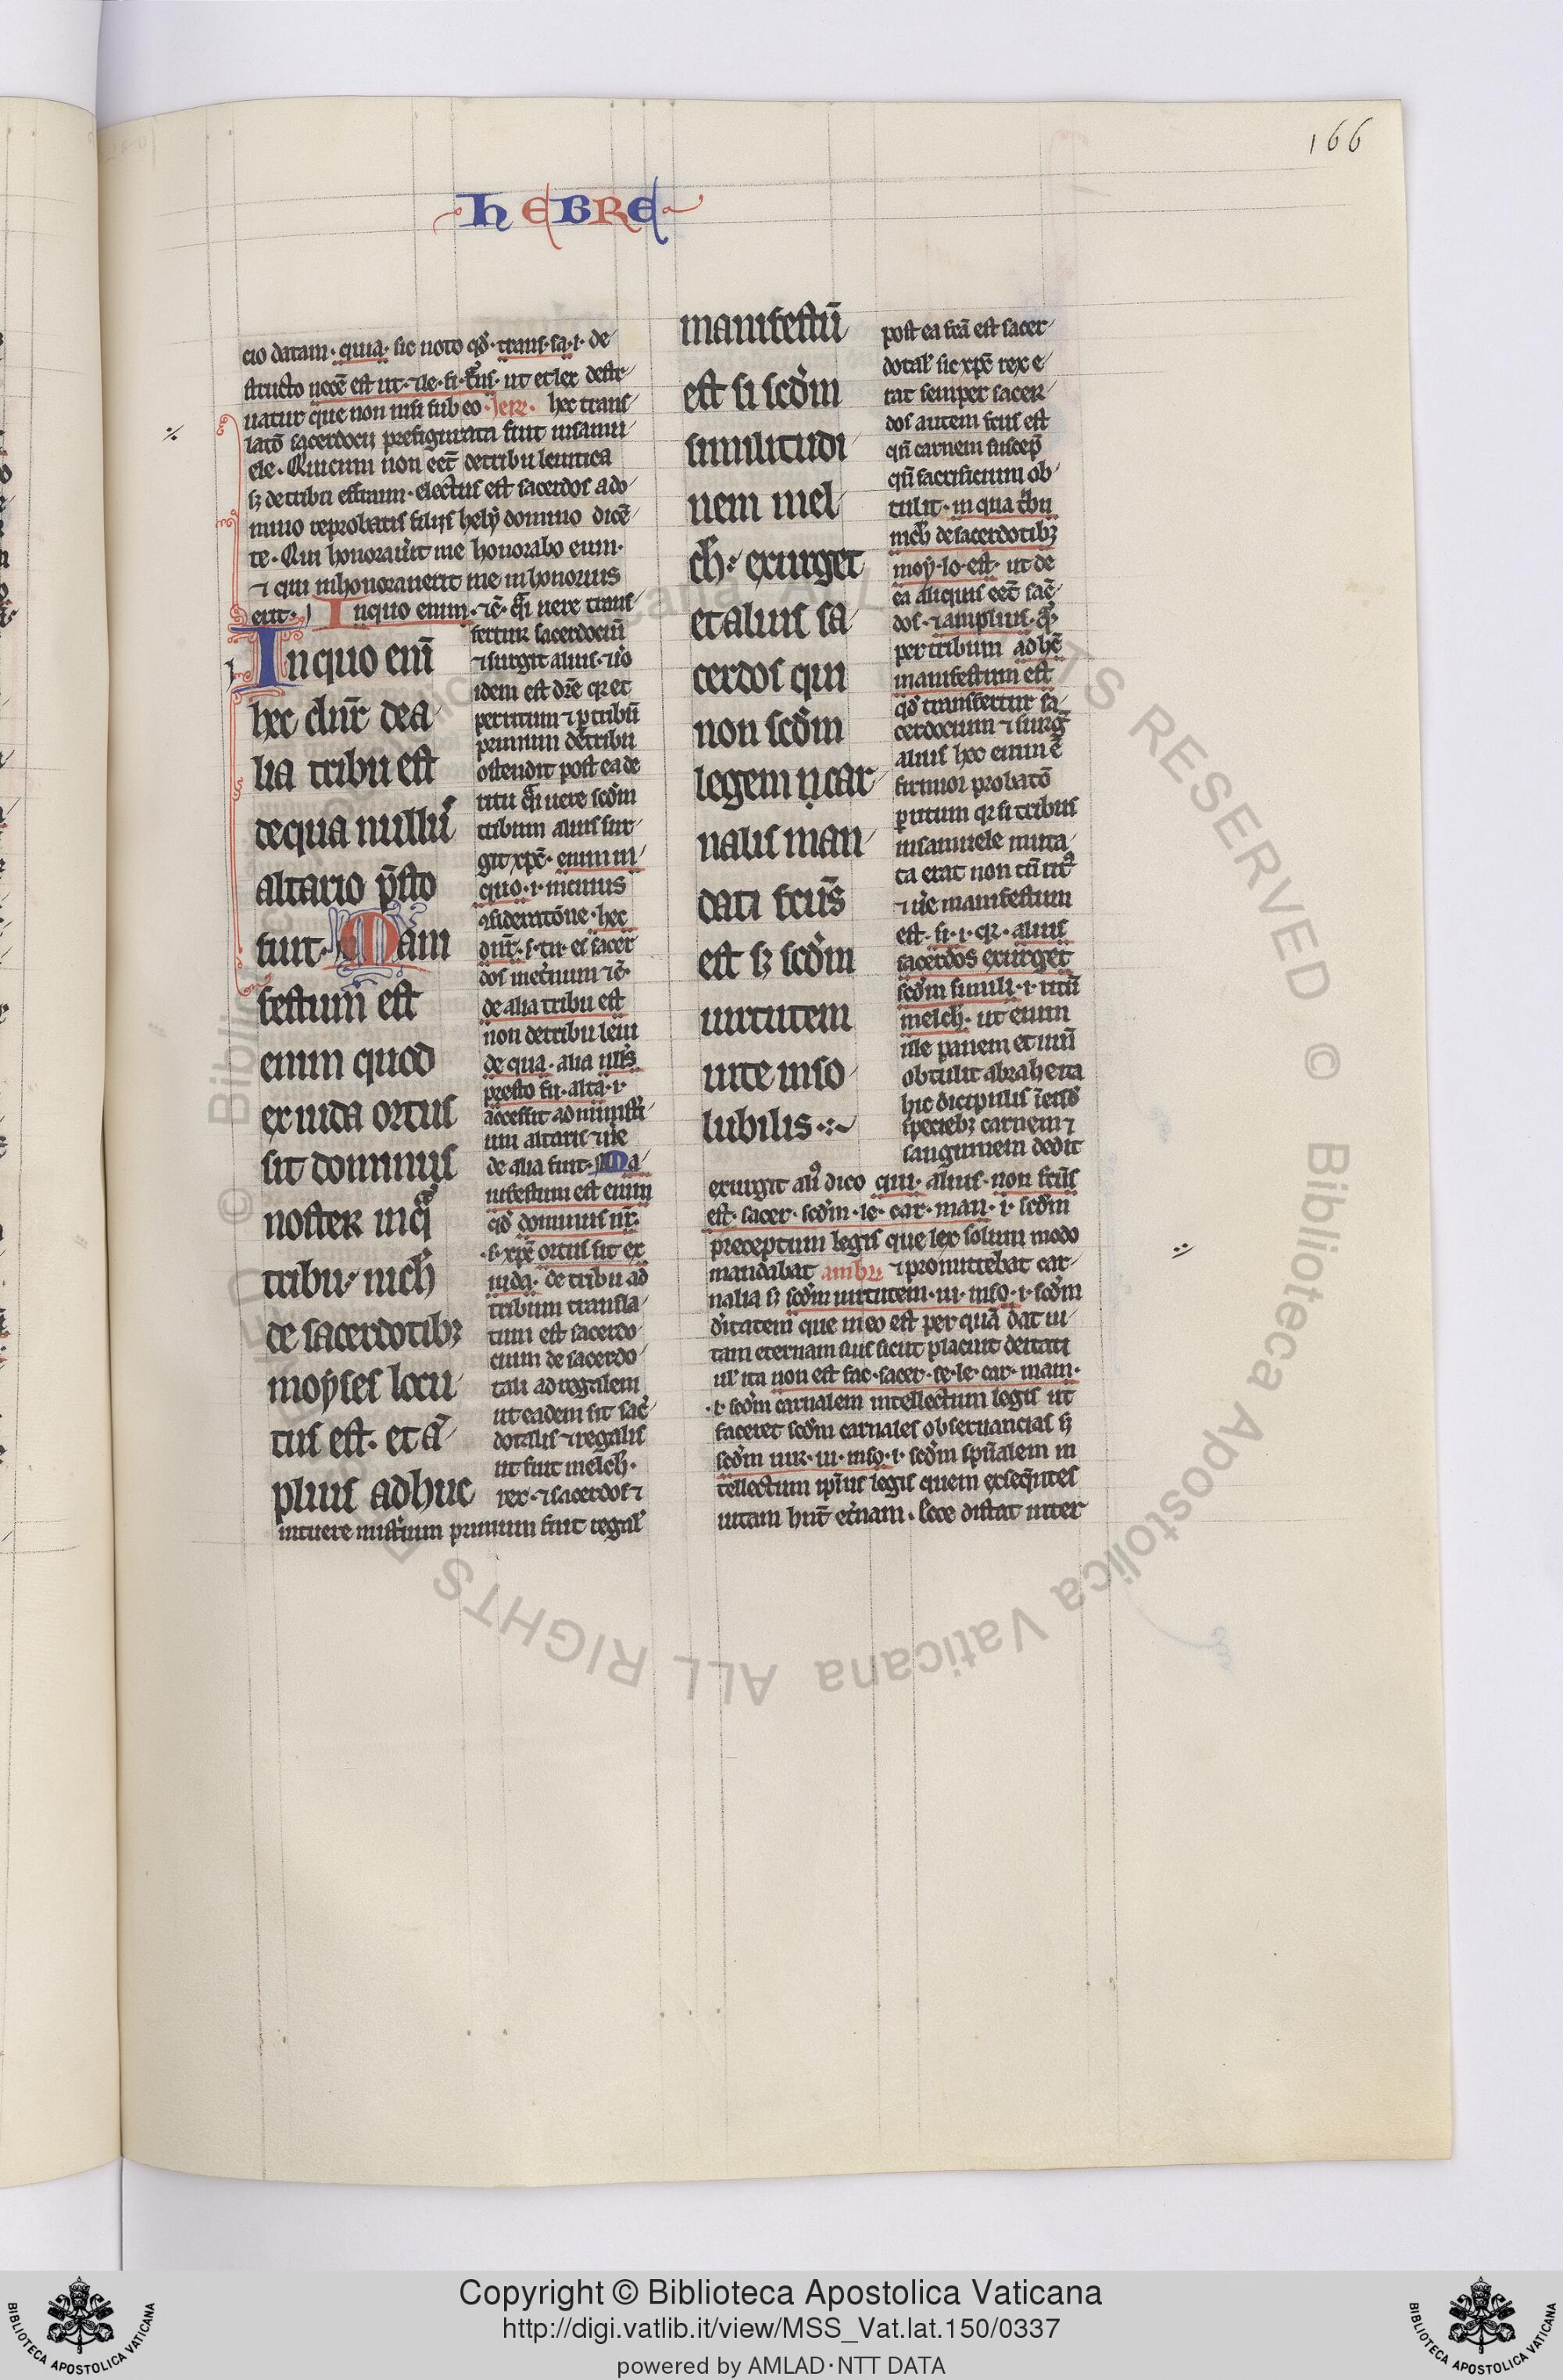 166
HEBRE
cio datam· quia· sic noto qđ· trans·sa·i· de
structo necē est ut· ⁊ le·fi·t̄ns· ut et lex destr
uatur que non nisi sub eo ·Jere· hec trans
latō sacerdocii prefigurata fuit in samu
ele· Qui cum non eēt de tribu leuitica
sꝫ de tribu effraim· electus est sacerdos a do
mino reprobatis filiis hely domino dicē
te· Qui honorau̾it me honorabo eum·
⁊ qui inhonorauerit me inhonorus
erit· In quo enim· ⁊c̄· q̄i uere trans
In quo eni̅
hec dnr̄ de a
lia tribu est
de qua nullus
altario p̄sto
fuit· Mani
festum est
enim quod
ex iuda ortus
sit dominus
noster in qa
tribu nich̄
de sacerdotibꝫ
moyses locu
tus est· et ā
plius adhuc
fertur sacerdociū
⁊ surgit alius· ū̾o
idem est dr̄e qꝛ et
per ritum ⁊ ꝑ tribū
primum de tribu
ostendit post ea de
ritu q̄i uere scđm
tribum alius sur
git xp̄c· enim in
quo·i· in cuius
ꝯsideratōne· hec
dnr̄·s· tu es sacer
dos in et̾num ⁊c̄·
de alia tribu est
non de tribu leui
de qua· alia nll̾s
presto fu·alta·i·
accessit ad minist̾i
um altaris ⁊ i̾e
de alia fuit· Ma
nifestum est enim
qđ dominus nr̄·
·s·xp̄c ortus sit ex
iuda· de tribu ad
tribum transla
tum est sacerdo
cium de sacerdo
tali ad regalem
ut eadem sit sac̾
dotalis ⁊ regalis
ut fuit melch̄·
rex ⁊ sacerdos ⁊
intuere mist̾ium primum fuit regal̾
manifestū
est si scđm
similitudi
nem mel
ch̄· exurget
et alius sa
cerdos qui
non scđm
legem car
nalis man
dati fcūs
est sꝫ scđm
uirtutem
uite inso
lubilis·:~
post ea fcā est sacer
dotal̾ sic xp̄c rex e
rat semper sacer
dos autem fcus est
qn̄ carnem suscep̄
qn̄ sacrificium ob
tulit· in qua t̾bu
nich̄ de sacerdotibꝫ
moy·lo·est· ut de
ea aliquis eēt sac̄
dos· ⁊ amplius· q̄·
per tribum adhc̄
manifestum est
qđ transfertur sa
cerdocium ⁊ surg̾
alius hec enim ē
firmior probatō
ꝑ ritum qꝛ si tribus
in samuele muta
ta erat non tn̄ ritꝰ
⁊ i̾e manifestum
est· si·i·qꝛ· alius
sacerdos exurget
scđm simili·i· ritū
melch̄· ut enim
ille panem et uinū
obtulit abrahe ita
hic discipulis ī eius
speciebꝫ carnem ⁊
sanguinem dedit
exurgit alꝰ dico qui· alius·non fcūs
est· sacer·scđm·le·car·man·i· scđm
preceptum legis que lex solum modo
mandabat ambu ⁊ promittebat car
nalia sꝫ scđm uirtutem·ui·inso·i·scđm
d̾itatem que in eo est per quā dat ui
tam eternam suis sicut placuit deitati
ul̾ ita non est fac·sacer·se·le·car·man·
·i· scđm carnalem intellectum legis ut
faceret scđm carnales obseruancias sꝫ
scđm uir·ui·inso·i· scđm spūalem in
tellectum ip̄ius legis quem exseq̄ntes
uitam hnt̄ et̾nam· Ecce distat inter
Copyright © Biblioteca Apostolica Vaticana
http://digi.vatlib.it/view/MSS_Vat.lat.150/0337
powered by AMLAD·NTT DATA
BIBLIOTECA APOSTOLICA VATICANA
BIBLIOTECA APOSTOLICA VATICANA
© Biblioteca Apostolica Vaticana ALL RIGHTS RESERVED